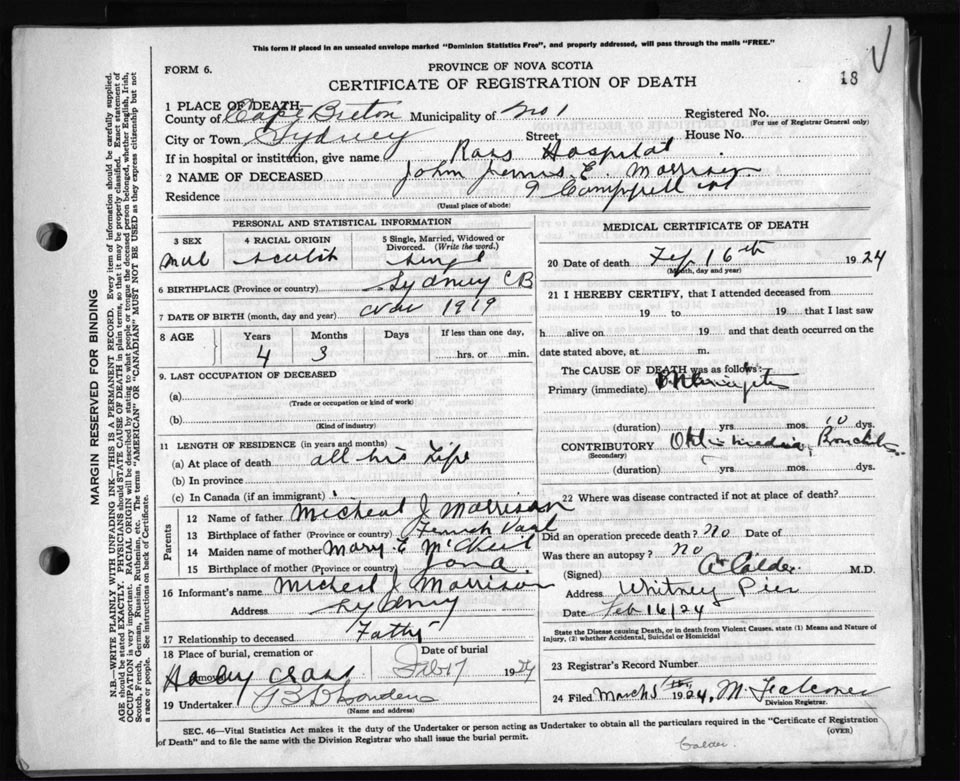 This form if placed in an unsealed envelope marked "Dominion Statistics Free", and properly addressed, will pass through the mails "FREE."
FORM 6.
PROVINCE OF NOVA SCOTIA
18
CERTIFICATE OF REGISTRATION OF DEATH
1 PLACE OF DEATH—
County of Cape Breton Municipality of No 1 Registered No.
(For use of Registrar General only)
City or Town Sydney Street House No.
If in hospital or institution, give name Ross Hospital
2 NAME OF DECEASED John James E. Morrison
Residence 9 Campbell
(Usual place of abode)
PERSONAL AND STATISTICAL INFORMATION
3 SEX
4 RACIAL ORIGIN
5 Single, Married, Widowed or Divorced. (Write the word.)
Singl
6 BIRTHPLACE (Province or country) Sydney CB
7 DATE OF BIRTH (month, day and year) Nov 1919
8 AGE Years Months Days If less than one day,
4 3 hrs. or min.
9. LAST OCCUPATION OF DECEASED
(a)
(Trade or occupation or kind of work)
(b)
(Kind of industry)
11 LENGTH OF RESIDENCE (in years and months)
(a) At place of death all his Life
(b) In province
(c) In Canada (if an immigrant)
Parents
12 Name of father Micheal J Morrison
13 Birthplace of father (Province or country) French Vaal
14 Maiden name of mother Mary E McNeil
15 Birthplace of mother (Province or country) Iona
16 Informant's name Micheal J Morrison
Address Sydney
17 Relationship to deceased Father
18 Place of burial, cremation or removal
Date of burial
Holey Cross Feb 17 1924
19 Undertaker
(Name and address)
MEDICAL CERTIFICATE OF DEATH
20 Date of death Feb 16th 1924
(Month, day and year)
21 I HEREBY CERTIFY, that I attended deceased from
19 to 19 that I last saw
h alive on 19 and that death occurred on
date stated above, at m.
The CAUSE OF DEATH was as follows:
Primary (immediate) Meningitis
(duration) yrs. mos. 10 dys.
CONTRIBUTORY Otitis media, Bronchitis
(Secondary)
(duration) yrs. mos. dys.
22 Where was disease contracted if not at place of death?
Did an operation precede death? No Date of
Was there an autopsy? no
(Signed) Calder M.D.
Address Whitney Pier
Date Feb 16/24
State the Disease causing Death, or in death from Violent Causes, state (1) Means and Nature of Injury, (2) whether Accidental, Suicidal or Homicidal
23 Registrar's Record Number
24 Filed March 5th 1924, M. Falconer
Division Registrar.
SEC. 46—Vital Statistics Act makes it the duty of the Undertaker or person acting as Undertaker to obtain all the particulars required in the "Certificate of Registration
of Death" and to file the same with the Division Registrar who shall issue the burial permit.
(OVER)
Calder.
MARGIN RESERVED FOR BINDING
N.B.—WRITE PLAINLY WITH UNFADING INK—THIS IS A PERMANENT RECORD. Every item of information should be carefully supplied.
AGE should be stated EXACTLY. PHYSICIANS should STATE CAUSE OF DEATH in plain terms, so that it may be properly classified. Exact statement of
OCCUPATION is very important. RACIAL ORIGIN will be described by stating to what people or tongue the deceased person belonged, whether English, Irish,
Scotch, French, German, Russian, Ruthenian, etc. The terms "AMERICAN" or "CANADIAN" MUST NOT BE USED as they express citizenship but not
a race or people. See instructions on back of Certificate.